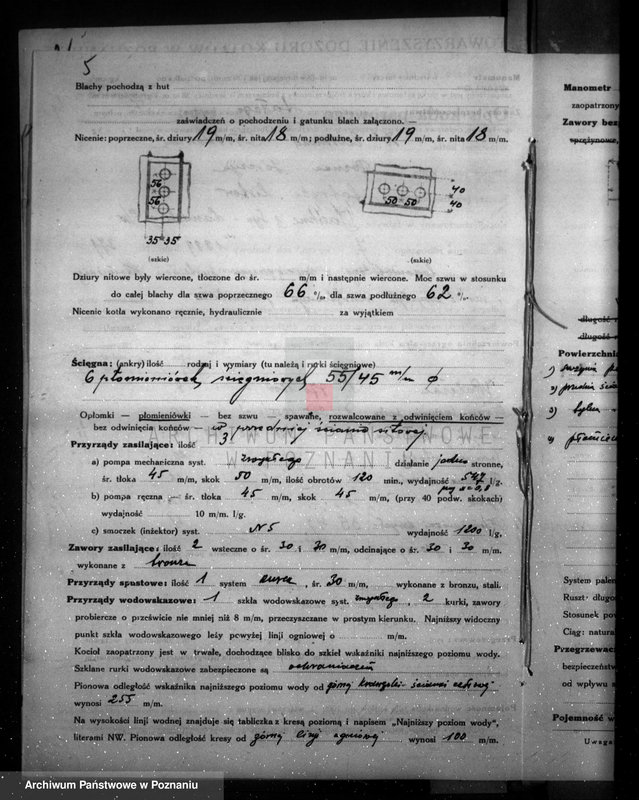 TOWARZYSZENIE DOZORU KOTŁÓW W POZNANIU
5
Blachy pochodzą z hut
zaświadczeń o pochodzeniu i gatunku blach załączono. —
Nicenie: poprzeczne, śr. dziury 19 m/m, śr. nita 18 m/m; podłużne, śr. dziury 19 m/m, śr. nita 18 m/m.
56
56
35 35
50 50
40
40
(szkic) (szkic)
Dziury nitowe były wiercone, tłoczone do śr. m/m i następnie wiercone. Moc szwu w stosunku
do całej blachy dla szwa poprzecznego 66 %, dla szwa podłużnego 62 %.
Nicenie kotła wykonano ręcznie, hydraulicznie za wyjątkiem
Ścięgna: (ankry) ilość rodzaj i wymiary (tu należą i rurki ścięgniowe)
6 płomieniówek 55/45 m/m φ
Opłomki — płomieniówki — bez szwu — spawane, rozwalcowane z odwinięciem końców —
— bez odwinięcia końców — w przedniej ścianie sitowej
ARCHIWUM PAŃSTWOWE
W POZNANIU
Przyrządy zasilające: ilość 3
a) pompa mechaniczna syst. zwykłego działanie jedno stronne,
śr. tłoka 45 m/m, skok 50 m/m, ilość obrotów 120 min., wydajność 547 l/g.
b) pompa ręczna śr. tłoka 45 m/m, skok 45 m/m, (przy 40 podw. skokach)
wydajność 10 m/m. l/g.
c) smoczek (inżektor) syst. N 5 wydajność 1200 l/g,
Zawory zasilające: ilość 2 wsteczne o śr. 30 i 30 m/m, odcinające o śr. 30 i 30 m/m.
wykonane z bronzu
Przyrządy spustowe: ilość 1 system, śr. 30 m/m, wykonane z bronzu, stali.
Przyrządy wodowskazowe: 1 szkła wodowskazowe syst. zwykłego, 2 kurki, zawory
probiercze o prześwicie nie mniej niż 8 m/m, przeczyszczane w prostym kierunku. Najniższy widoczny
punkt szkła wodowskazowego leży powyżej linji ogniowej o m/m.
Kocioł zaopatrzony jest w trwałe, dochodzące blisko do szkieł wskaźniki najniższego poziomu wody.
Szklane rurki wodowskazowe zabezpieczone są
Pionowa odległość wskaźnika najniższego poziomu wody od górnej krawędzi ścianki
wynosi 255 m/m.
Na wysokości linji wodnej znajduje się tabliczka z kresą poziomą i napisem „Najniższy poziom wody",
literami NW. Pionowa odległość kresy od górnej linji ogniowej wynosi 100 m/m.
Manometr
zaopatrzony
Zawory bez
sprężynowe,
długość
długość
Powierzchnia
1)
2)
3)
4)
System palen
Ruszt: długo
Stosunek po
Ciąg: natura
Przegrzewac
bezpieczeństw
od wpływu s
Pojemność w
Uwaga
Archiwum Państwowe w Poznaniu